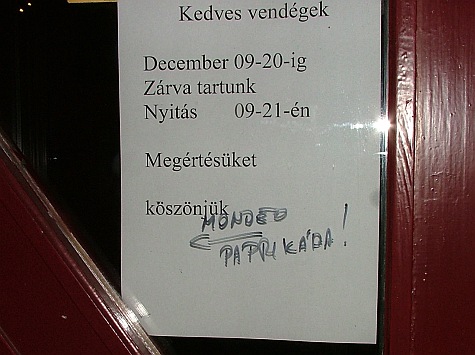 Kedves vendégek
December 09-20-ig
Zárva tartunk
Nyitás 09-21-én
Megértésüket
köszönjük
MONDEO
PAPRIKÁDA!